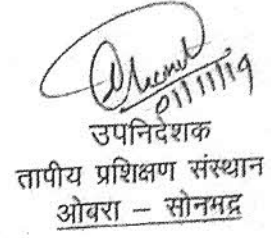 01/11/19
उपनिदेशक
तापीय प्रशिक्षण संस्थान
ओबरा – सोनभद्र